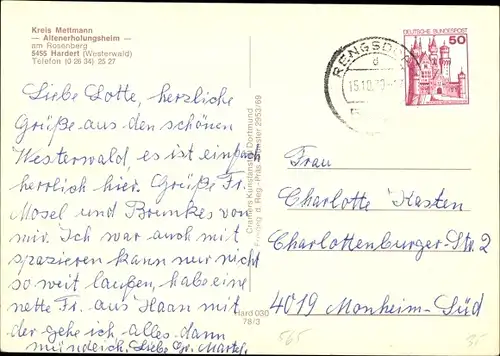 Kreis Mettmann
— Altenerholungsheim —
am Rosenberg
5455 Hardert (Westerwald)
Telefon (0 26 34) 25 27
Liebe Lotte, herzliche
Grüße aus den schönen
Westerwald, es ist einfach
herrlich hier. Grüße Fr.
Mosel und Brunkes von
mir. Ich war auch mit
spazieren kann nur nicht
so weit laufen, habe eine
nette Fr. aus Haan mit
der gehe ich alles dann
mündlich. Liebe Gr. Martel.
Cramers Kunstanstalt Dortmund
Freigeg. d. Reg.-Präs. Münster 2953/69
Hard 030
78/3
RENGSDORF
d
15.10.79
DEUTSCHE BUNDESPOST
50
Frau
Charlotte Kasten
Charlottenburger-Str. 2
4019 Monheim-Süd
565
35